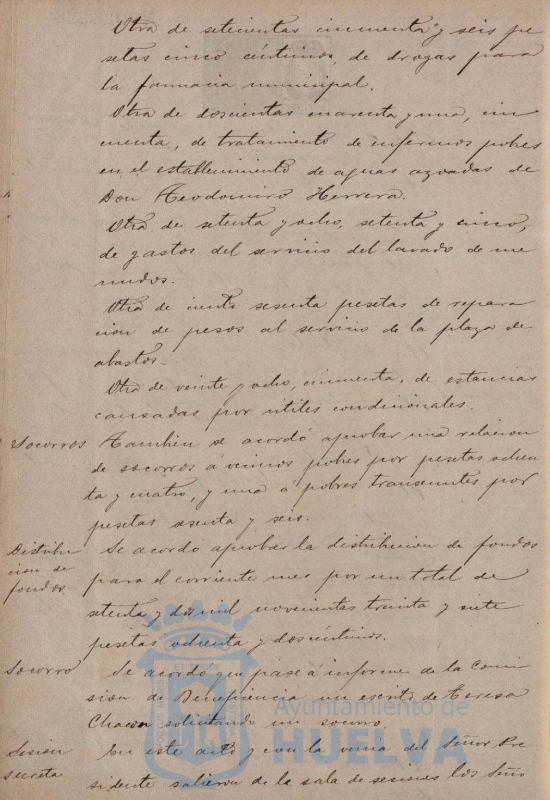 Otra de setecientas cincuenta y seis pe
setas cinco céntimos, de drogas para
la farmacia municipal.
Otra de doscientas cuarenta y una, cin
cuenta, de tratamiento de enfermos pobres
en el establecimiento de aguas azoadas de
Don Teodomiro Herrera.
Otra de setenta y ocho, setenta y cinco,
de gastos del servicio del lavado de me
nudos.
Otra de ciento sesenta pesetas de repara
cion de pesos al servicio de la plaza de
abastos.
Otra de veinte y ocho, cincuenta, de estancias
causadas por utiles condicionales.
Socorros Tambien se acordó aprobar una relacion
de socorros a vecinos pobres por pesetas ochen
ta y cuatro, y una a pobres transeuntes por
pesetas sesenta y seis.
Distribu
cion de
fondos
Se acordo aprobar la distribucion de fondos
para el corriente mes por un total de
setenta y dos mil novecientas treinta y siete
pesetas ochenta y dos céntimos.
Socorro Se acordó que pase a informe de la Comi
sion de Beneficencia un escrito de Teresa
Chacon solicitando un socorro.
Sesion
secreta
En este acto y con la venia del Señor Pre
sidente salieron de la sala de sesiones los Seño
Ayuntamiento de
HUELVA